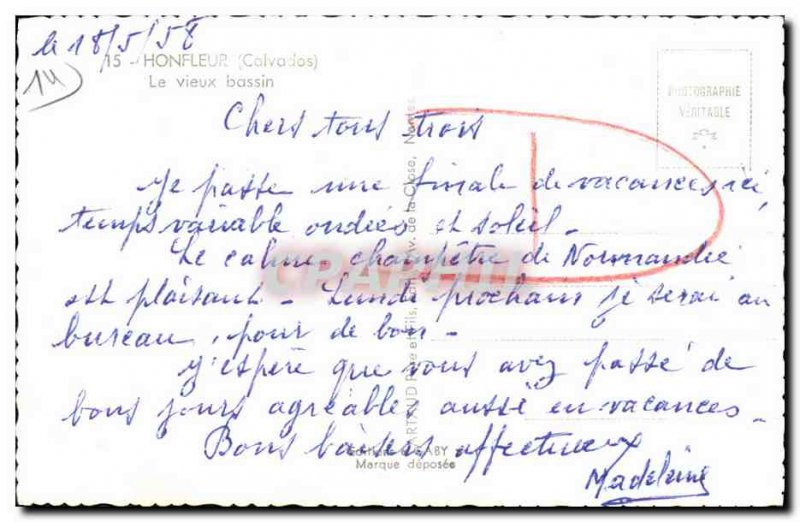 le 18/5/58
14
15 - HONFLEUR (Calvados)
Le vieux bassin
PHOTOGRAPHIE
VÉRITABLE
Chers tous trois
Je passe une finale de vacances ici,
temps variable ondées et soleil -
Le calme champêtre de Normandie
est plaisant - Lundi prochain je serai au
bureau, pour de bon -
J'espère que vous avez passé de
bons jours agréables aussi en vacances -
Bons baisers affectueux
Madeleine
Editions GABY
Marque déposée
ARTAUD Père et Fils, Av. de la Close, Nantes
CPARAMA